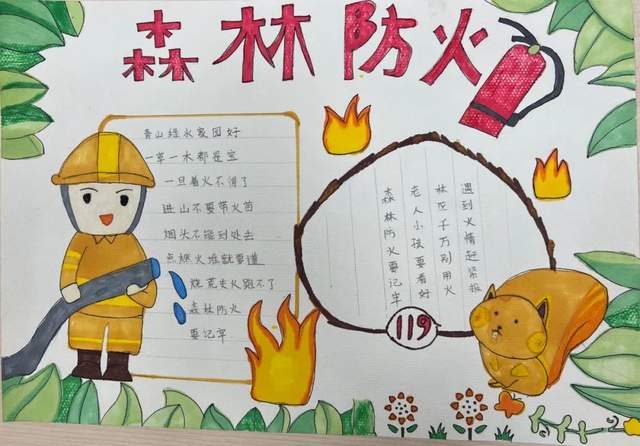 森林防火
青山绿水家园好
一草一木都是宝
一旦着火不得了
进山不要带火苗
烟头不能到处丢
点燃火堆就要遭
烧荒失火跑不了
森林防火
要记牢
遇到火情赶紧报
林区千万别用火
老人小孩要看好
森林防火要记牢
119